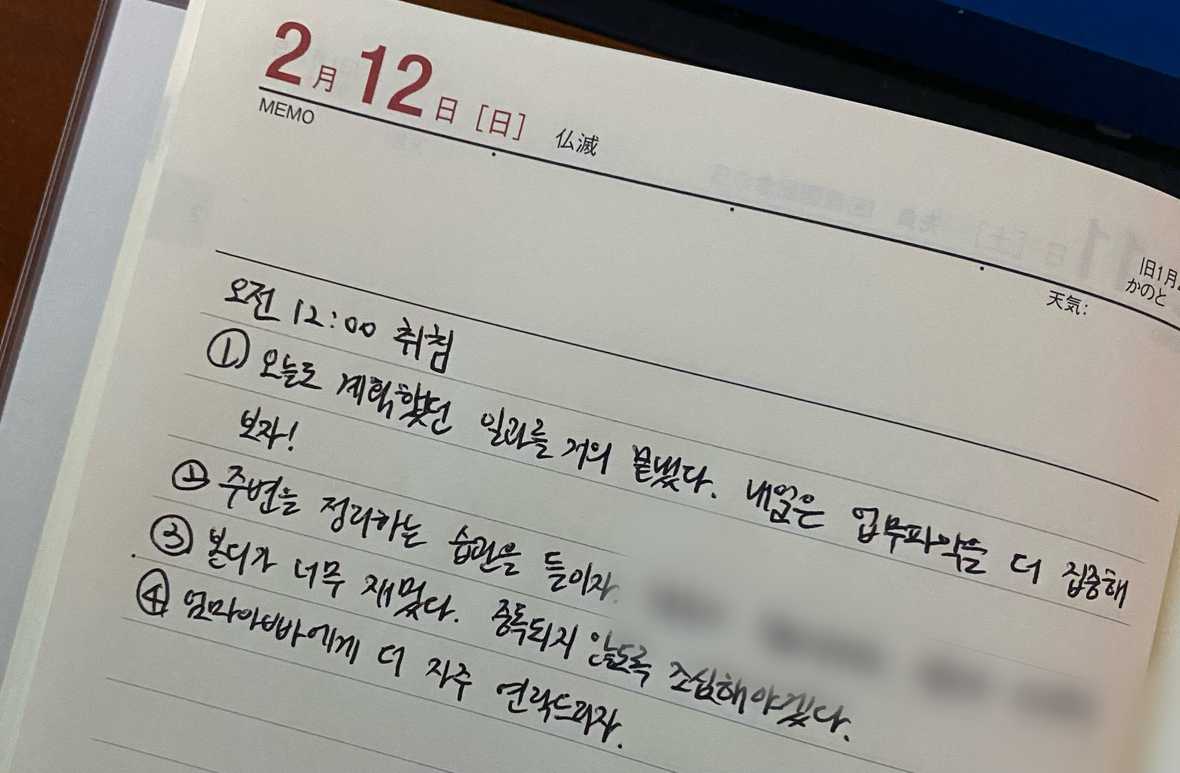 2月 12日 [日] 仏滅
MEMO
旧1月
かのと
天気:
오전 12:00 취침
① 오늘도 계획했던 일과를 거의 끝냈다. 내일은 업무파악을 더 집중해
보자!
② 주변을 정리하는 습관을 들이자.
③ 본디가 너무 재밌다. 중독되지 않도록 조심해야겠다.
④ 엄마아빠에게 더 자주 연락드리자.